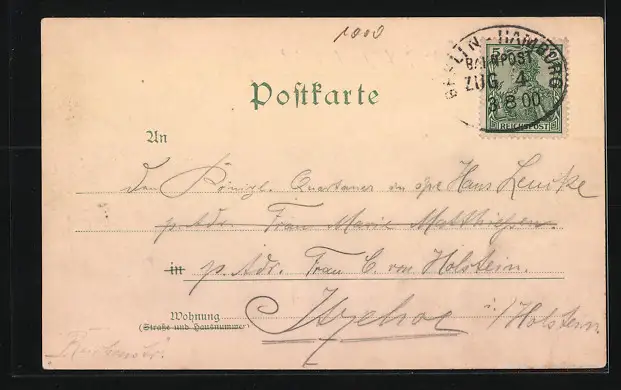 1000
BERLIN - HAMBURG
BAHNPOST
ZUG 4
3 8 00
5
REICHSPOST
Postkarte
An
den Königl. Quartaner Hans Lemcke
p. Adr. Frau Marie Matthießen.
in p. Adr. Frau C. von Holstein.
Wohnung
(Straße und Hausnummer)
Itzehoe
i./Holstein.